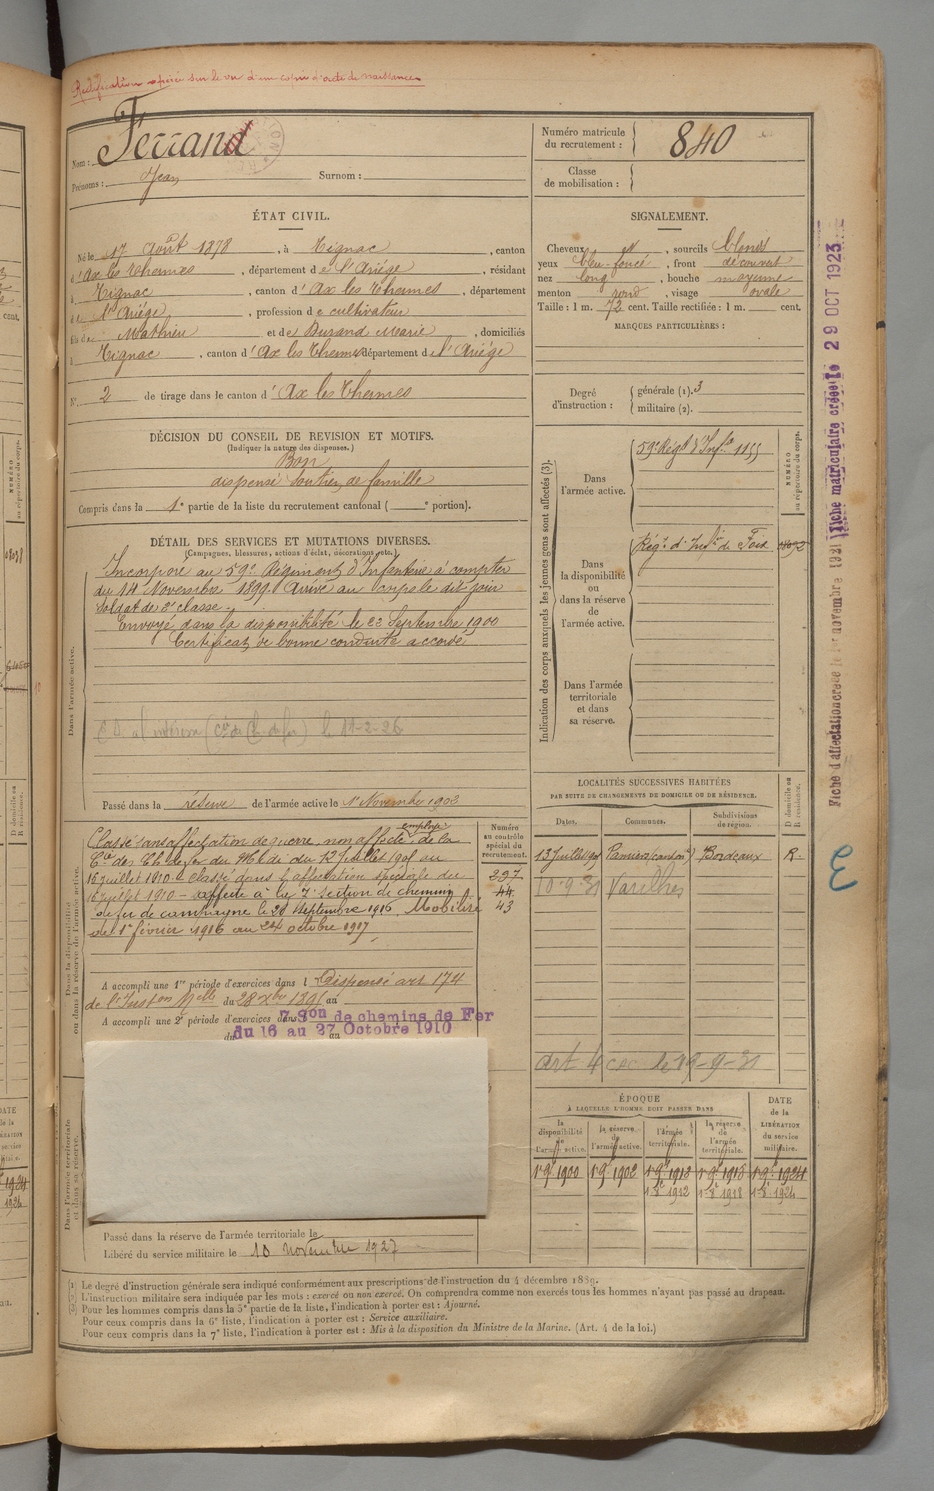 Rectification opérée sur le vu d'une copie d'acte de naissance
Nom : Ferrand
Prénoms : Jean Surnom :
Numéro matricule du recrutement : 840
Classe de mobilisation :
ÉTAT CIVIL.
Né le 17 Août 1878, à Tignac, canton
d'Ax les Thermes, département de l'Ariége, résidant
à Tignac, canton d'Ax les Thermes, département
de l'Ariége, profession de cultivateur
fils de Mathieu et de Durand Marie, domiciliés
à Tignac, canton d'Ax les Thermes département de l'Ariége
N° 2 de tirage dans le canton d'Ax les Thermes
SIGNALEMENT.
Cheveux et, sourcils blonds
yeux bleu-foncé, front découvert
nez long, bouche moyenne
menton rond, visage ovale
Taille : 1 m. 72 cent. Taille rectifiée : 1 m. cent.
MARQUES PARTICULIÈRES :
Degré d'instruction : générale (1). 3
militaire (2).
DÉCISION DU CONSEIL DE REVISION ET MOTIFS.
(Indiquer la nature des dispenses.)
Bon
dispensé soutien de famille
Compris dans la 1e partie de la liste du recrutement cantonal ( e portion).
DÉTAIL DES SERVICES ET MUTATIONS DIVERSES.
(Campagnes, blessures, actions d'éclat, décorations, etc.)
Dans l'armée active.
Incorporé au 59e Régiment d'Infanterie à compter
du 14 Novembre 1899. Arrivé au corps le dit jour
soldat de 2e classe.
Envoyé dans la disponibilité le 22 Septembre 1900
Certificat de bonne conduite accordé
le 11-2-26
Passé dans la réserve de l'armée active le 1er Novembre 1902
Indication des corps auxquels les jeunes gens sont affectés (3).
NUMÉRO au répertoire du corps.
Dans l'armée active.
59e Régt d'Infie 1155
Dans la disponibilité ou dans la réserve de l'armée active.
Régt d'Infie de Foix
Dans l'armée territoriale et dans sa réserve.
LOCALITÉS SUCCESSIVES HABITÉES
PAR SUITE DE CHANGEMENTS DE DOMICILE OU DE RÉSIDENCE.
Dates. Communes. Subdivisions de région. D domicile ou R résidence.
Pamiers Bordeaux R.
10-9-31 Varilhes
Art 4 le 19-9-31
Dans la disponibilité ou dans la réserve de l'armée active.
Numéro au contrôle spécial du recrutement.
Classé sans affectation de guerre, non affecté, employé de la
Cie des Ch. de fer du Midi du 12 Juillet 1901 au
15 juillet 1910 - Classé dans l'affectation spéciale du 297
16 juillet 1910 - affecté à la 7e section de chemins 44
de fer de campagne le 20 Septembre 1916. Mobilisé 43
du 1er février 1916 au 24 octobre 1917
A accompli une 1re période d'exercices dans l Dispensé art 174
de l'Inston Melle du 28 Xbre 1895 au
A accompli une 2e période d'exercices dans 7 Son de chemins de Fer
du 16 au 27 Octobre 1910
Dans l'armée territoriale et dans sa réserve.
Passé dans la réserve de l'armée territoriale le
Libéré du service militaire le 10 novembre 1927
ÉPOQUE
À LAQUELLE L'HOMME DOIT PASSER DANS
DATE de la LIBÉRATION du service militaire.
la disponibilité de l'armée active. la réserve de l'armée active. l'armée territoriale. la réserve de l'armée territoriale.
1 9e 1900 1 9e 1902 1 9e 1912 1 9e 1918 1 9e 1924
1 8e 1912 1 8e 1918 1 8e 1924
(1) Le degré d'instruction générale sera indiqué conformément aux prescriptions de l'instruction du 4 décembre 1889.
(2) L'instruction militaire sera indiquée par les mots : exercé ou non exercé. On comprendra comme non exercés tous les hommes n'ayant pas passé au drapeau.
(3) Pour les hommes compris dans la 5e partie de la liste, l'indication à porter est : Ajourné.
Pour ceux compris dans la 6e liste, l'indication à porter est : Service auxiliaire.
Pour ceux compris dans la 7e liste, l'indication à porter est : Mis à la disposition du Ministre de la Marine. (Art. 4 de la loi.)
Fiche matriculaire créée le 29 OCT 1923
Fiche d'affectation créée le 1er novembre 1921